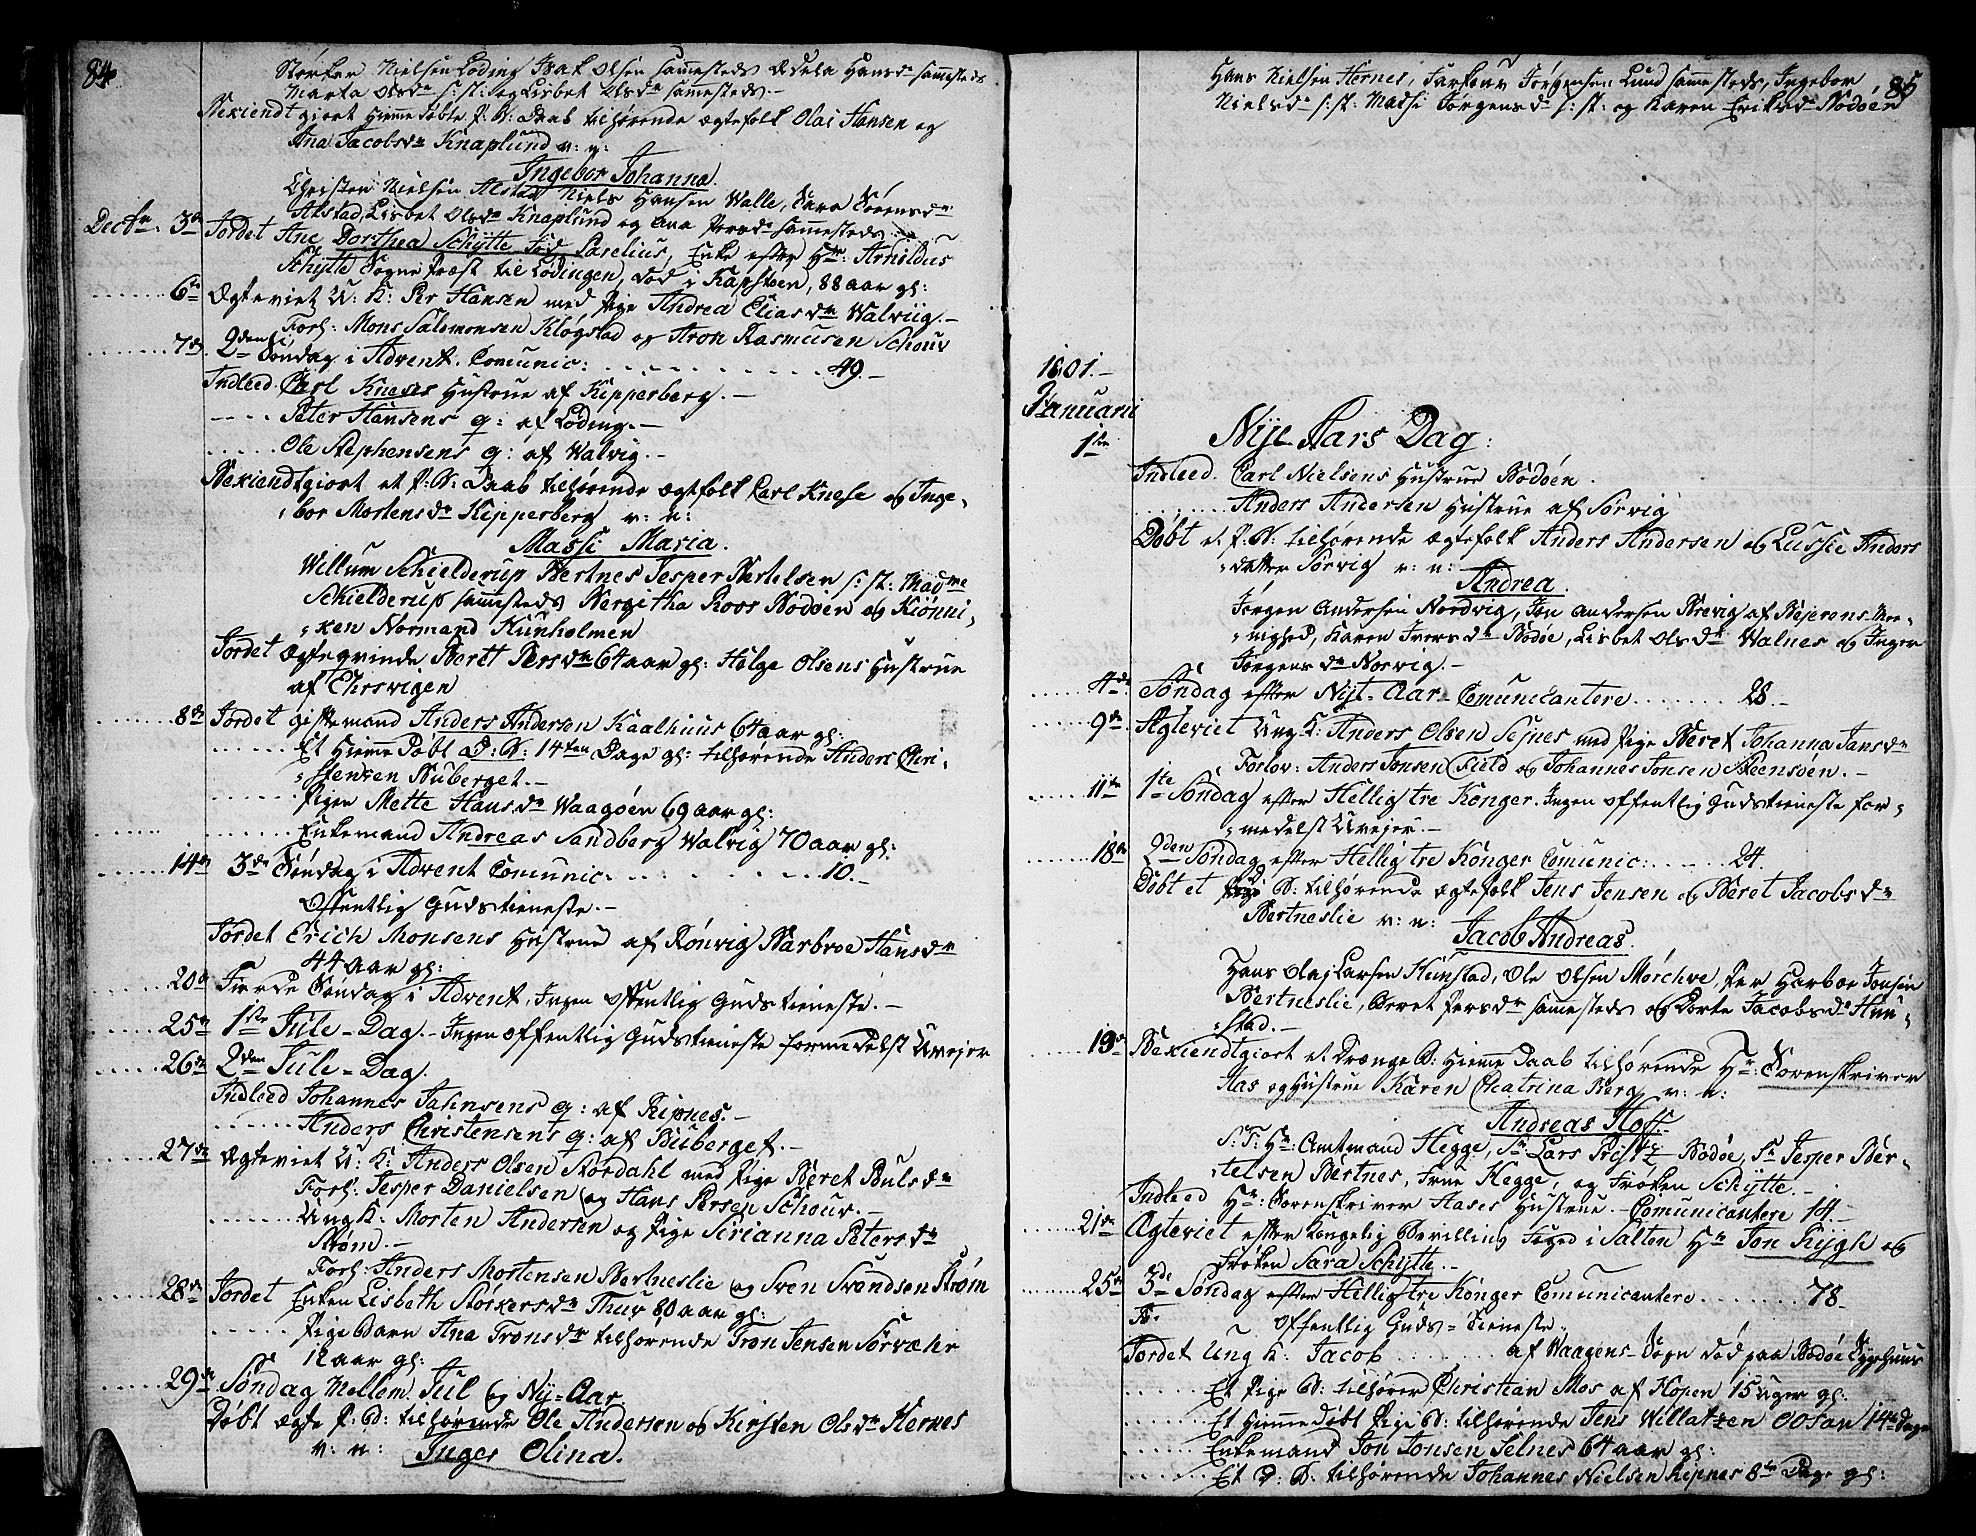 84
Størker Nielsen Løding Isak Olsen sammesteds Adela Hansdr sammesteds
Marta Olsdr s: st: og Lisbet Olsdr sammesteds.-
Bekiendtgiort hiemmedøbte P: B: Daab tilhørende Ægtefolk Olai Hansen og
Ana Jacobsdr Knaplund v: n:
Ingebor Johanna.
Christen Nielsen Alstad Niels Hansen Walle, Sara Sørensdr
Alstad, Lisbet Olsdr Knaplund og Ana Persdr sammesteds
Decbr. 3de Jordet Ane Dorthea Schytte fød Parelius, Enke efter Hr: Arnildus
Schytte Sogne Præst til Lødingen, død i Kapstøen, 88 aar gl:
6te Ægteviet U: K: Per Hansen med Pige Andrea Eliasdr Walviig.-
Forl: Mons Salomonsen Kløgstad og Aron Rasmusen Schouv
7de 2den Søndag i Advent. Comunic: 49.-
Indleed. Carl Kneses Hustrue af Kipperberg.-
Peter Hansens q: af Løding.-
Ole Stephensens q: af Walvig.-
Bekiendtgiort et P: B: Daab tilhørende Ægtefolk Carl Knese og Inge-
bor Mortensdr Kipperberg v: n:
Massi Maria.
Willum Schielderup Bertnes Jesper Bertelsen s: st: Madme
Schielderup sammesteds Bergitha Roos Bodøen og Kiønni-
ken Normand Hunholmen
Jordet Ægteqvinde Berit Persdr 64 aar gl: Helge Olsens Hustrue
af Ehrsvigen
8de Jordet giftemand Anders Andersen Kaalhuus 64 aar gl:
Et Hiemme Døbt D: B: 14ten Dage gl: tilhørende Anders Chri-
stensen Buberget.-
Pigen Mette Hansdr Waagøen 69 aar gl:
Enkemand Andreas Sandberg Walvig 70 aar gl:
14de 3de Søndag i Advent Comunic. 10.-
Offentlig Gudstieneste.-
Jordet Erich Monsens Hustrue af Rønvig Barbroe Hansdr
44 aar gl:
20de Fierde Søndag i Advent, Ingen offentlig Gudstieneste.-
25de 1ste Jule-Dag.- Ingen offentlig Gudstieneste formedelst Uvejer
26de 2den Jule-Dag.
Indleed Johannes Jahnsens q: af Ripnes.-
Anders Christensens q: af Buberget.-
27de Ægteviet U: K: Anders Olsen Stordahl med Pige Beret Bulsdr
Forl: Jesper Danielsen og Hans Persen Schouv.-
Ung K: Morten Andersen og Pige Sirianna Petersdr
Strøm.-
Forl: Anders Mortensen Bertneslie og Sven Svendsen Strøm
28de Jordet Enken Lisbeth Størkersdr Thuv 80 aar gl:
Pige Barn Ana Tronsdr tilhørende Tron Jensen Sørvæhr
12 aar gl:
29de Søndag Mellem Jul og Ny-Aar
Døbt Ægte P: B: tilhørende Ole Andersen og Kirsten Olsdr Hernes
v: n: Inger Olina.
85
Hans Nielsen Hernes, Jørgensen Lund sammesteds, Ingebor
Nielsdr s: st: Massi Jørgensdr s: st: og Karen Eriksdr Bodøen
1801.-
Januarii
1ste Nye Aars Dag:
Indleed. Carl Nielsens Hustrue Bodøen.
Anders Andersen Hustrue af Sørvig
Døbt et P. B. tilhørende Ægtefolk Anders Andersen og Lussie Anders
datter Sørvig v: n:
Andrea.
Jørgen Andersen Nordvig, Jon Andersen Brevig af Bejerens Me-
nighed, Karen Iversdr Bodøe, Lisbet Olsdr Walnes og Inger
Jørgensdr Norvig.-
4de Søndag efter Nyt-Aar Comunicantere 28.-
9de Ægteviet Ung K: Anders Olsen Sejnes med Pige Beret Johanna Jansdr
Forlov: Anders Jonsen Field og Johannes Jonsen Steensøen.-
11te 1te Søndag efter Hellig tre Konger. Ingen offentlig Gudstieneste for-
medelst Uvejer.-
18de 2den Søndag efter Hellig tre Konger Comunic: 24.
Døbt et D B: tilhørende Ægtefolk Jens Jensen og Beret Jacobsdr
Bertneslie v: n:
Jacob Andreas.
Hans Olaj Larsen Hunstad, Ole Olsen Mørchve, Per Harboe Jonsen
Bertneslie, Beret Persdr sammesteds og Dorte Jacobsdr Hun-
stad.-
19de Bekiendtgiort et Drænge B: Hiemme Daab tilhørende Hr: Sorenskriver
Aas og Hustrue Karen Chatrina Berg v: n:
Andreas Hoff.
S: T: Hr: Amtmand Hegge, Sr Lars Bodøe, Sr Jesper Ber-
telsen Bertnes, Frue Hegge, og Frøken Schytte.-
Indleed Hr: Sorenskriver Aases Hustrue.- Comunicantere 14.-
21de Ægteviet efter Kongelig Bevilling Foged i Salten Hr Jon Rygh og
Frøken Sara Schytte.-
25de 3de Søndag efter Hellig tre Konger Comunicantere 78.
offentlig Guds-Tieneste.
Jordet Ung K: Jacob af Waagens-Sogn død paa Bodøe Sygehuus
Et Pige B: tilhører Christian Mos af Kopen 15 uger gl:
Et Hiemmedøbt Pige B: tilhørende Jens Willatzen Oosan 14 dage
Enkemand Jon Jonsen Selnes 64 aar gl:
Et D: B: tilhørende Johannes Nielsen Ripnes 8te Dage gl: